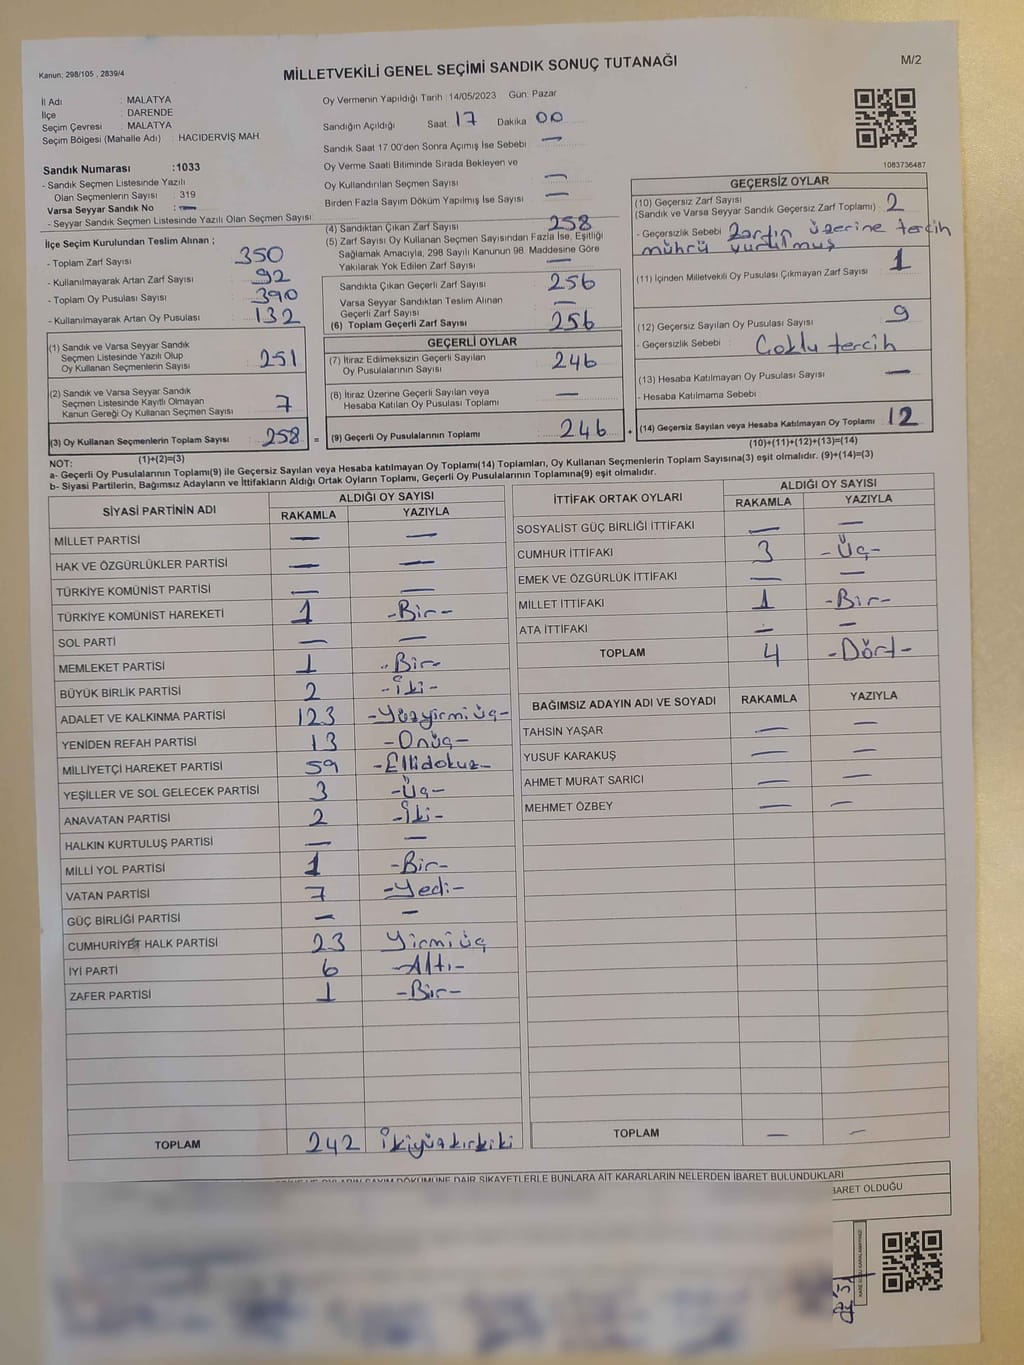 Kanun; 298/105 , 2839/4
MİLLETVEKİLİ GENEL SEÇİMİ SANDIK SONUÇ TUTANAĞI
M/2
İl Adı : MALATYA
İlçe : DARENDE
Seçim Çevresi : MALATYA
Seçim Bölgesi (Mahalle Adı) : HACIDERVİŞ MAH.
Sandık Numarası :1033
- Sandık Seçmen Listesinde Yazılı
Olan Seçmenlerin Sayısı : 319
Varsa Seyyar Sandık No : —
- Seyyar Sandık Seçmen Listesinde Yazılı Olan Seçmen Sayısı
Oy Vermenin Yapıldığı Tarih :14/05/2023 Gün: Pazar
Sandığın Açıldığı Saat: 17 Dakika 00
Sandık Saat 17.00'den Sonra Açımış İse Sebebi —
Oy Verme Saati Bitiminde Sırada Bekleyen ve
Oy Kullandırılan Seçmen Sayısı —
Birden Fazla Sayım Döküm Yapılmış İse Sayısı —
1083736487
İlçe Seçim Kurulundan Teslim Alınan ;
- Toplam Zarf Sayısı 350
- Kullanılmayarak Artan Zarf Sayısı : 92
- Toplam Oy Pusulası Sayısı : 390
- Kullanılmayarak Artan Oy Pusulası : 132
(1) Sandık ve Varsa Seyyar Sandık
Seçmen Listesinde Yazılı Olup
Oy Kullanan Seçmenlerin Sayısı : 251
(2) Sandık ve Varsa Seyyar Sandık
Seçmen Listesinde Kayıtlı Olmayan
Kanun Gereği Oy Kullanan Seçmen Sayısı : 7
(3) Oy Kullanan Seçmenlerin Toplam Sayısı : 258 =
(1)+(2)=(3)
(4) Sandıktan Çıkan Zarf Sayısı 258
(5) Zarf Sayısı Oy Kullanan Seçmen Sayısından Fazla İse, Eşitliği
Sağlamak Amacıyla, 298 Sayılı Kanunun 98. Maddesine Göre
Yakılarak Yok Edilen Zarf Sayısı —
Sandıkta Çıkan Geçerli Zarf Sayısı : 256
Varsa Seyyar Sandıktan Teslim Alınan
Geçerli Zarf Sayısı : —
(6) Toplam Geçerli Zarf Sayısı : 256
GEÇERLİ OYLAR
(7) İtiraz Edilmeksizin Geçerli Sayılan
Oy Pusulalarının Sayısı : 246
(8) İtiraz Üzerine Geçerli Sayılan veya
Hesaba Katılan Oy Pusulası Toplamı : —
(9) Geçerli Oy Pusulalarının Toplamı : 246
GEÇERSİZ OYLAR
(10) Geçersiz Zarf Sayısı
(Sandık ve Varsa Seyyar Sandık Geçersiz Zarf Toplamı) : 2
- Geçersizlik Sebebi : Zarfın üzerine tercih
mührü vurulmuş
(11) İçinden Milletvekili Oy Pusulası Çıkmayan Zarf Sayısı : 1
(12) Geçersiz Sayılan Oy Pusulası Sayısı : 9
- Geçersizlik Sebebi : Çoklu tercih
(13) Hesaba Katılmayan Oy Pusulası Sayısı : —
- Hesaba Katılmama Sebebi :
(14) Geçersiz Sayılan veya Hesaba Katılmayan Oy Toplamı : 12
(10)+(11)+(12)+(13)=(14)
NOT:
a- Geçerli Oy Pusulalarının Toplamı(9) ile Geçersiz Sayılan veya Hesaba katılmayan Oy Toplamı(14) Toplamları, Oy Kullanan Seçmenlerin Toplam Sayısına(3) eşit olmalıdır. (9)+(14)=(3)
b- Siyasi Partilerin, Bağımsız Adayların ve İttifakların Aldığı Ortak Oyların Toplamı, Geçerli Oy Pusulalarının Toplamına(9) eşit olmalıdır.
SİYASİ PARTİNİN ADI ALDIĞI OY SAYISI
RAKAMLA YAZIYLA
MİLLET PARTİSİ — —
HAK VE ÖZGÜRLÜKLER PARTİSİ — —
TÜRKİYE KOMÜNİST PARTİSİ — —
TÜRKİYE KOMÜNİST HAREKETİ 1 -Bir-
SOL PARTİ — —
MEMLEKET PARTİSİ 1 -Bir-
BÜYÜK BİRLİK PARTİSİ 2 -İki-
ADALET VE KALKINMA PARTİSİ 123 -Yüzyirmiüç-
YENİDEN REFAH PARTİSİ 13 -Onüç-
MİLLİYETÇİ HAREKET PARTİSİ 59 -Ellidokuz-
YEŞİLLER VE SOL GELECEK PARTİSİ 3 -Üç-
ANAVATAN PARTİSİ 2 -İki-
HALKIN KURTULUŞ PARTİSİ — —
MİLLİ YOL PARTİSİ 1 -Bir-
VATAN PARTİSİ 7 -Yedi-
GÜÇ BİRLİĞİ PARTİSİ — —
CUMHURİYET HALK PARTİSİ 23 Yirmiüç
İYİ PARTİ 6 -Altı-
ZAFER PARTİSİ 1 -Bir-
TOPLAM 242 İkiyüzkırkiki
İTTİFAK ORTAK OYLARI ALDIĞI OY SAYISI
RAKAMLA YAZIYLA
SOSYALİST GÜÇ BİRLİĞİ İTTİFAKI — —
CUMHUR İTTİFAKI 3 -Üç-
EMEK VE ÖZGÜRLÜK İTTİFAKI — —
MİLLET İTTİFAKI 1 -Bir-
ATA İTTİFAKI — —
TOPLAM 4 -Dört-
BAĞIMSIZ ADAYIN ADI VE SOYADI RAKAMLA YAZIYLA
TAHSİN YAŞAR — —
YUSUF KARAKUŞ — —
AHMET MURAT SARICI — —
MEHMET ÖZBEY — —
TOPLAM — —
OYLARIN SAYIM DÖKÜMÜNE DAİR ŞİKAYETLERLE BUNLARA AİT KARARLARIN NELERDEN İBARET BULUNDUKLARI
BARET OLDUĞU
KARE KODU KARALAMAYINIZ